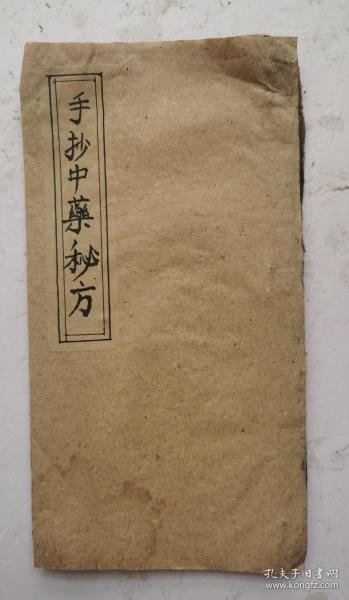 手抄中藥秘方
孔夫子旧书网